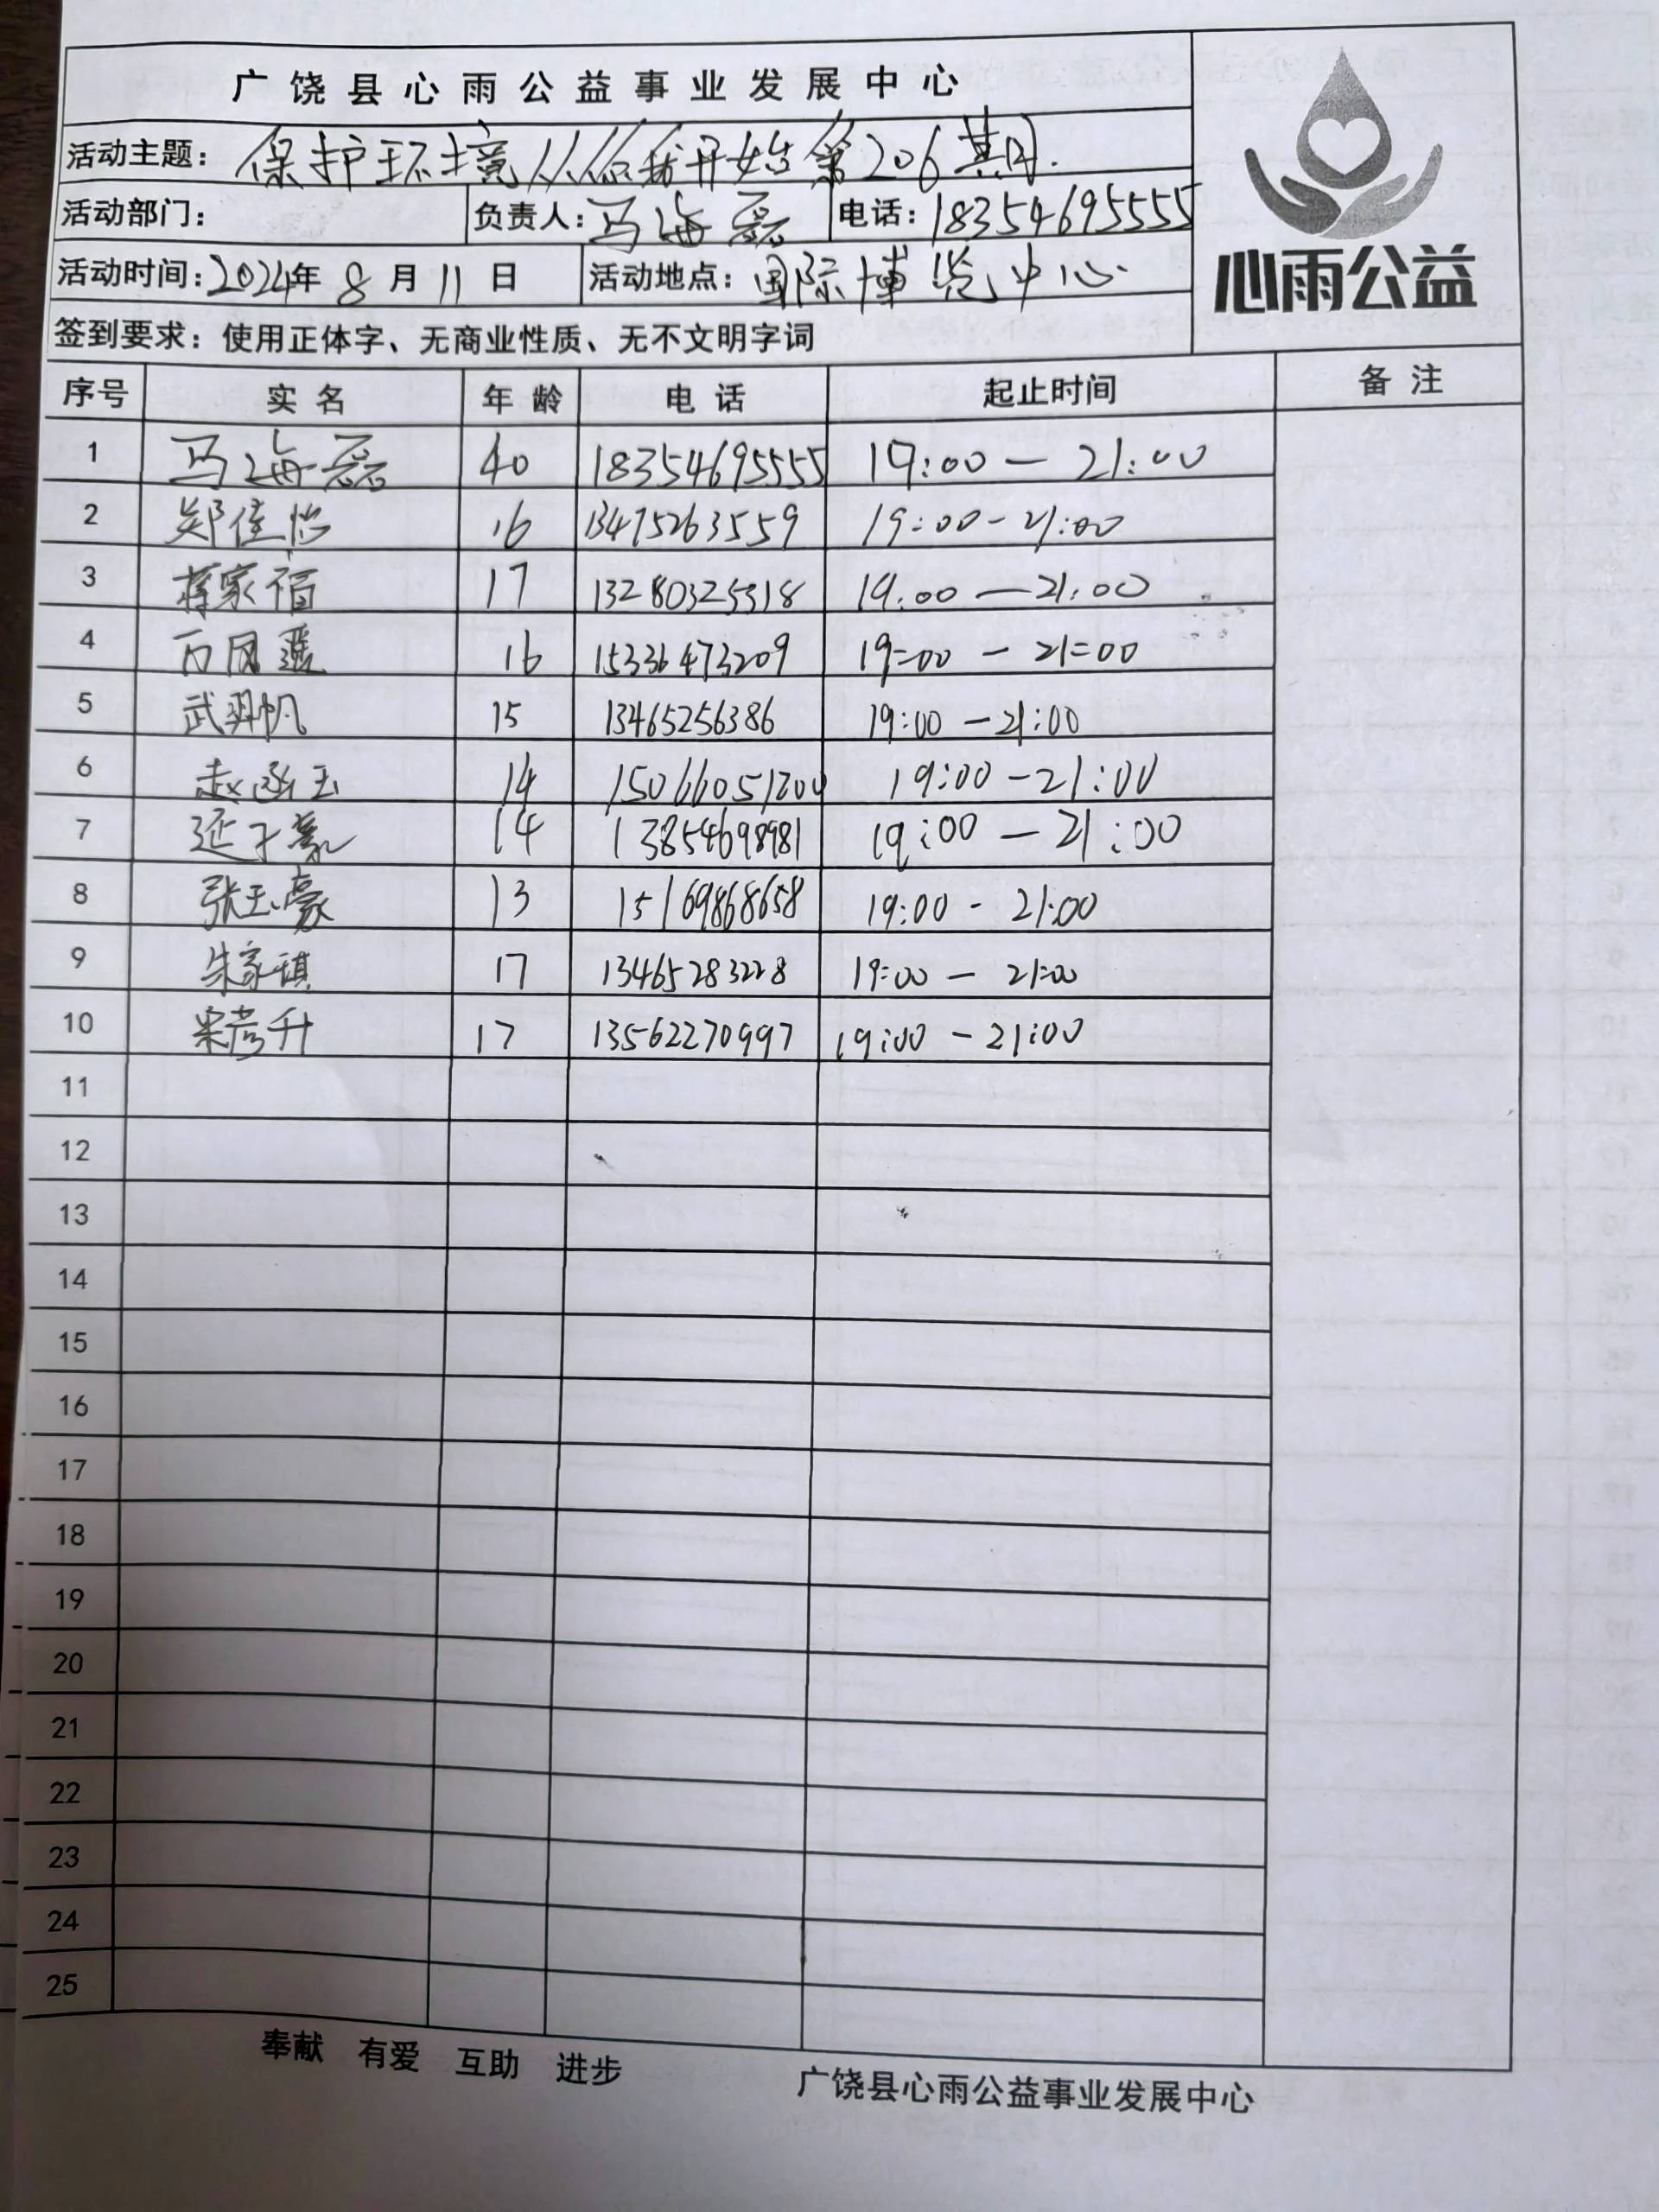 广饶县心雨公益事业发展中心
活动主题：保护环境从你我开始第206期.
活动部门：	负责人：马海磊	电话：18354695555
活动时间：2024年 8 月 11 日	活动地点：国际博览中心
心雨公益
签到要求：使用正体字、无商业性质、无不文明字词
序号 实名 年龄 电话 起止时间 备注
1 马海磊 40 18354695555 19:00 — 21:00
2 郑佳怡 16 13475263559 19:00 - 21:00
3 蒋家福 17 13280325318 19:00 — 21:00
4 16 15336473209 19:00 - 21:00
5 武羿帆 15 13465256386 19:00 - 21:00
6 赵函玉 14 15066051200 19:00 - 21:00
7 延子豪 14 13854698981 19:00 — 21:00
8 张玉豪 13 15169868658 19:00 - 21:00
9 朱家琪 17 13465283228 19:00 — 21:00
10 宋彦升 17 13562270997 19:00 - 21:00
11
12
13
14
15
16
17
18
19
20
21
22
23
24
25
奉献 有爱 互助 进步 广饶县心雨公益事业发展中心